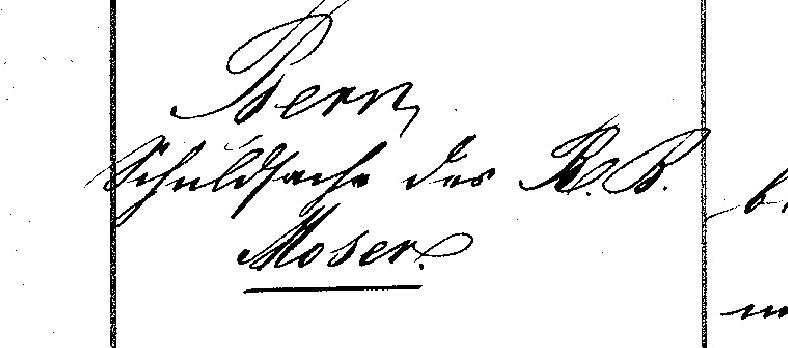 Bern,
Schuldsache des R. B.
Moser.